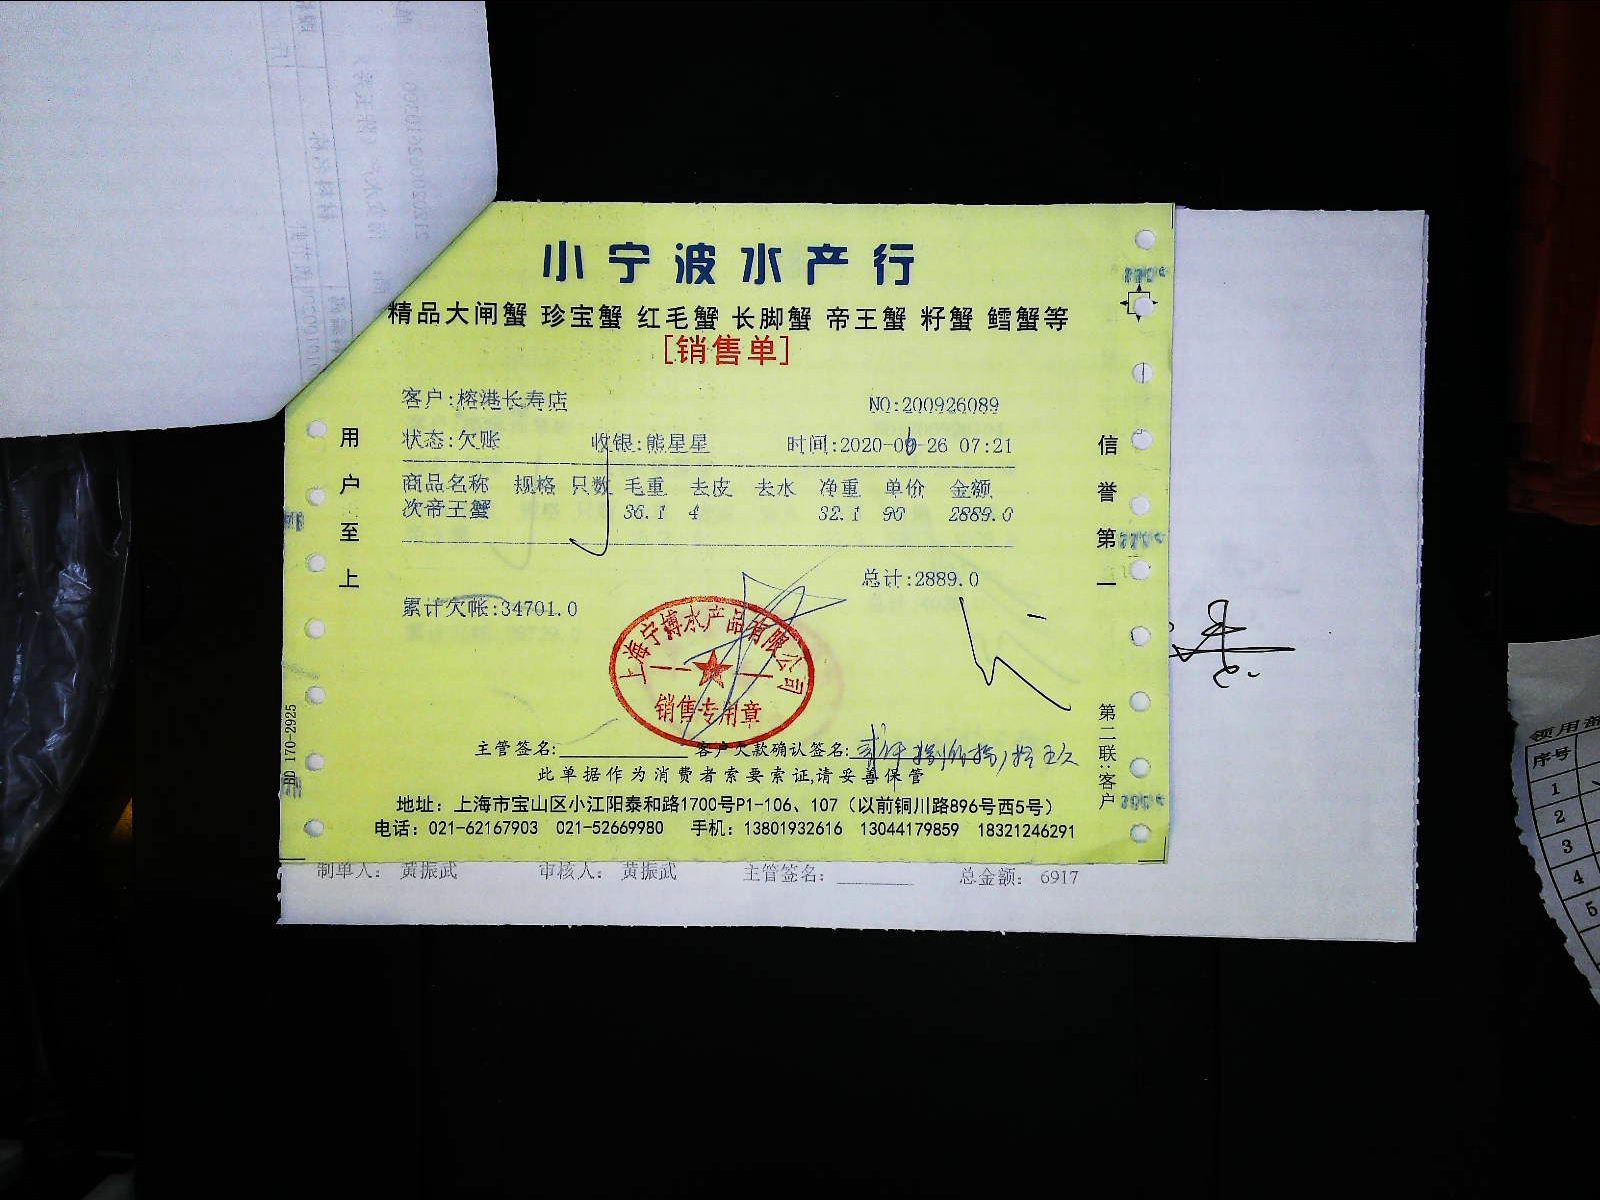 小宁波水产行
精品大闸蟹 珍宝蟹 红毛蟹 长脚蟹 帝王蟹 籽蟹 鳕蟹等
[销售单]
客户:榕港长寿店 NO:200926089
状态:欠账 收银:熊星星 时间:2020-09-26 07:21
商品名称 规格 只数 毛重 去皮 去水 净重 单价 金额
次帝王蟹 36.1 4 32.1 90 2889.0
总计:2889.0
累计欠帐:34701.0
上海宁博水产品有限公司
销售专用章
主管签名: 客户欠款确认签名:
此单据作为消费者索要索证,请妥善保管
地址：上海市宝山区小江阳泰和路1700号P1-106、107（以前铜川路896号西5号）
电话：021-62167903 021-52669980 手机：13801932616 13044179859 18321246291
用户至上
信誉第一
第二联:客户
170-2925
制单人： 黄振武 审核人： 黄振武 主管签名： 总金额： 6917
领用
序号
1
2
3
4
5